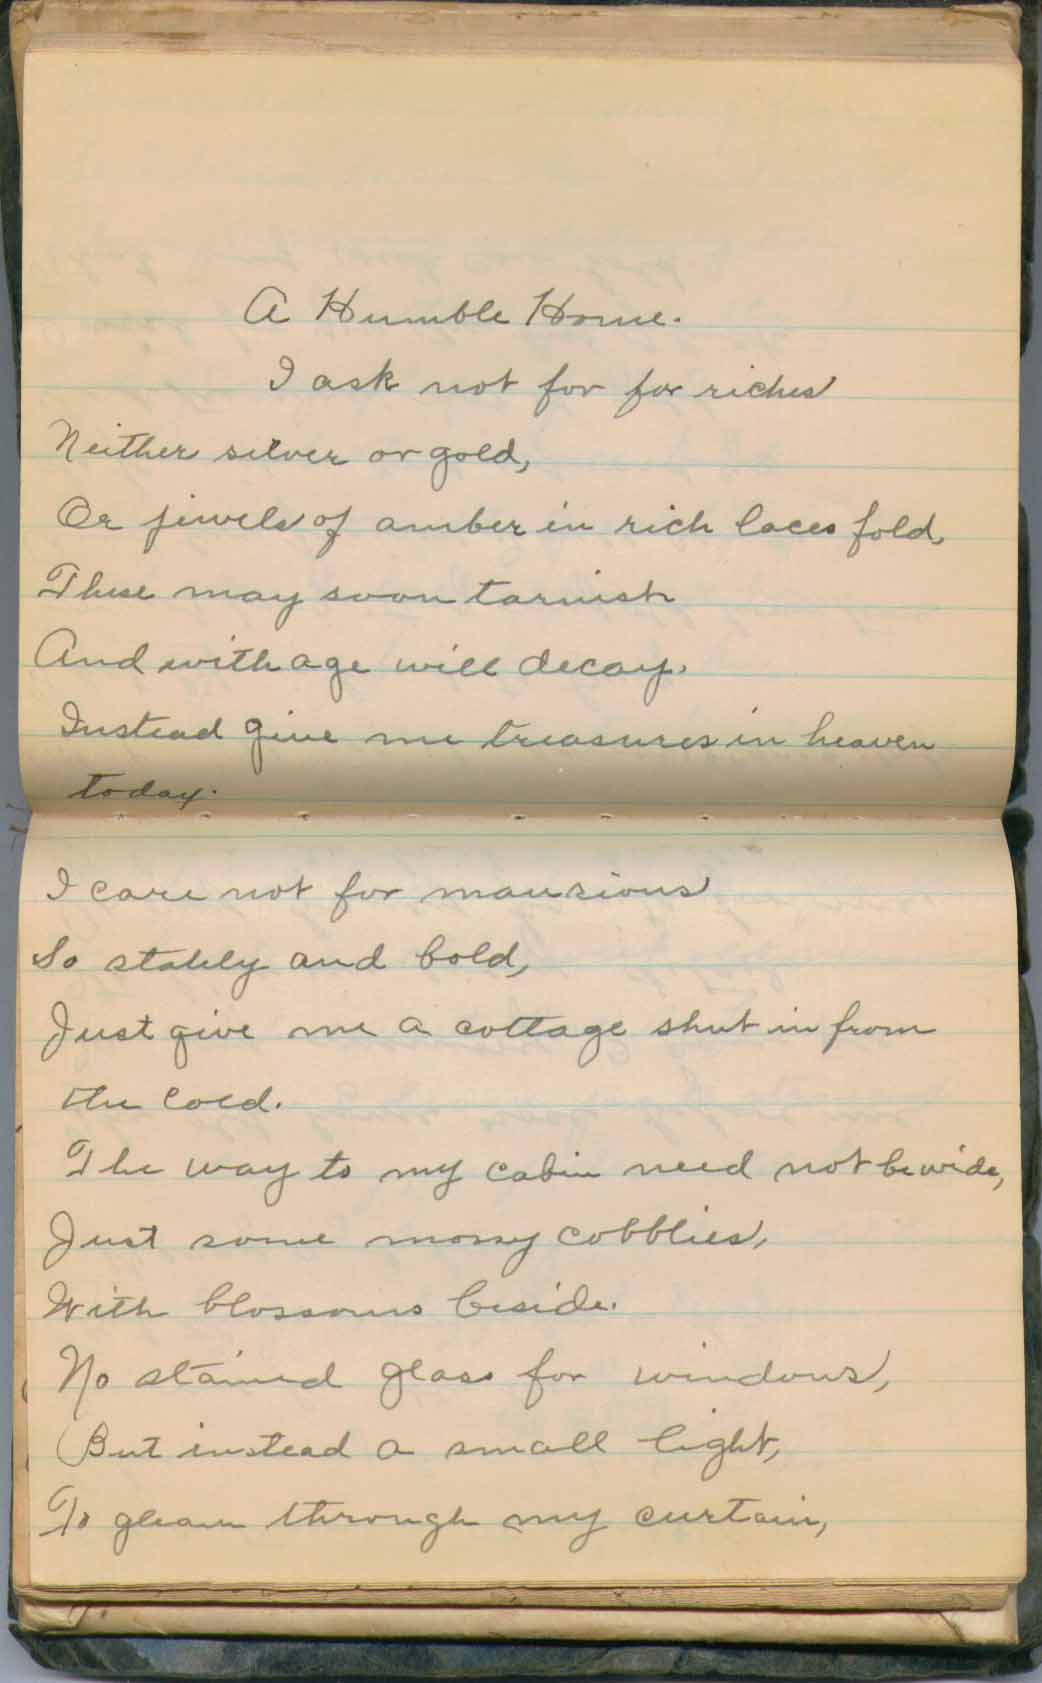 A Humble Home.
I ask not for for riches
Neither silver or gold,
Or jewels of amber in rich laces fold,
These may soon tarnish
And with age will decay.
Instead give me treasures in heaven
today.
I care not for mansions
So stately and bold,
Just give me a cottage shut in from
the cold.
The way to my cabin need not be wide,
Just some mossy cobblies,
With blossoms beside.
No stained glass for windows,
But instead a small light,
To gleam through my curtain,